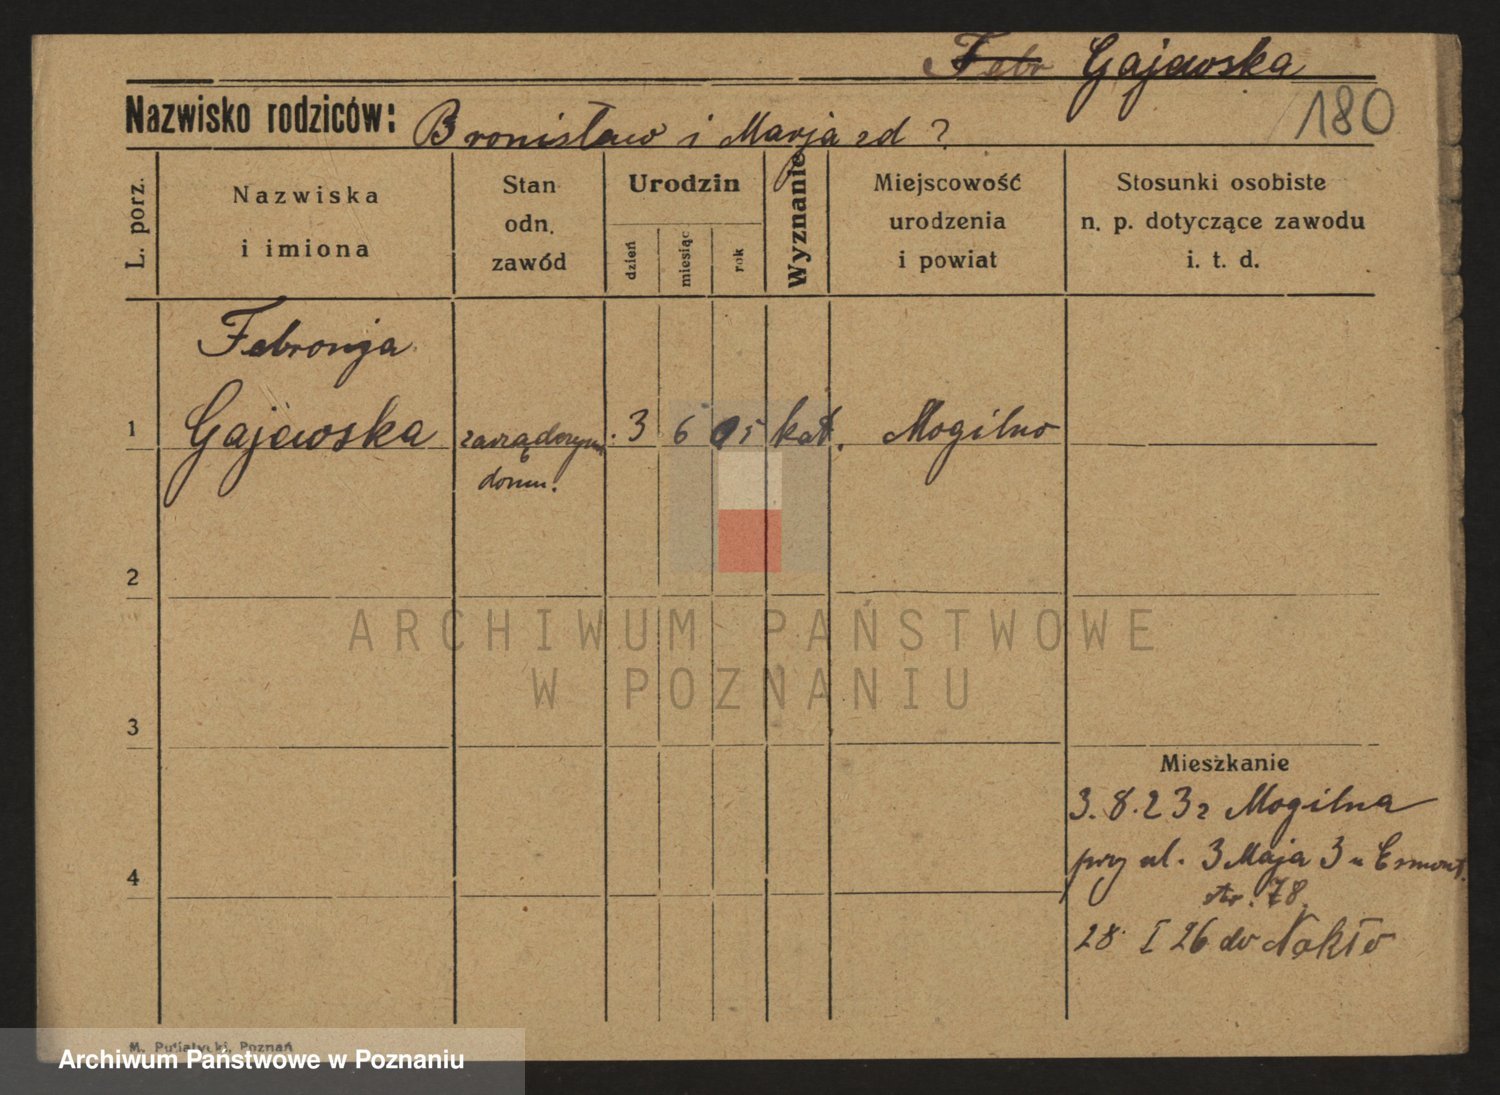 Febr Gajewska
180
Nazwisko rodziców: Bronisław i Marja zd ?
L. porz.
Nazwiska
i imiona
Stan
odn.
zawód
Urodzin
dzień
miesiąc
rok
Wyznanie
Miejscowość
urodzenia
i powiat
Stosunki osobiste
n. p. dotyczące zawodu
i. t. d.
Febronja
1 Gajewska 3 6 05 kat. Mogilno
domu.
2
ARCHIWUM PAŃSTWOWE
W POZNANIU
3
Mieszkanie
3. 8. 23 z Mogilna
przy ul. 3 Maja 3 u
str. 78.
4
28 I 26 do Nakło
M. Putiatycki, Poznań
Archiwum Państwowe w Poznaniu